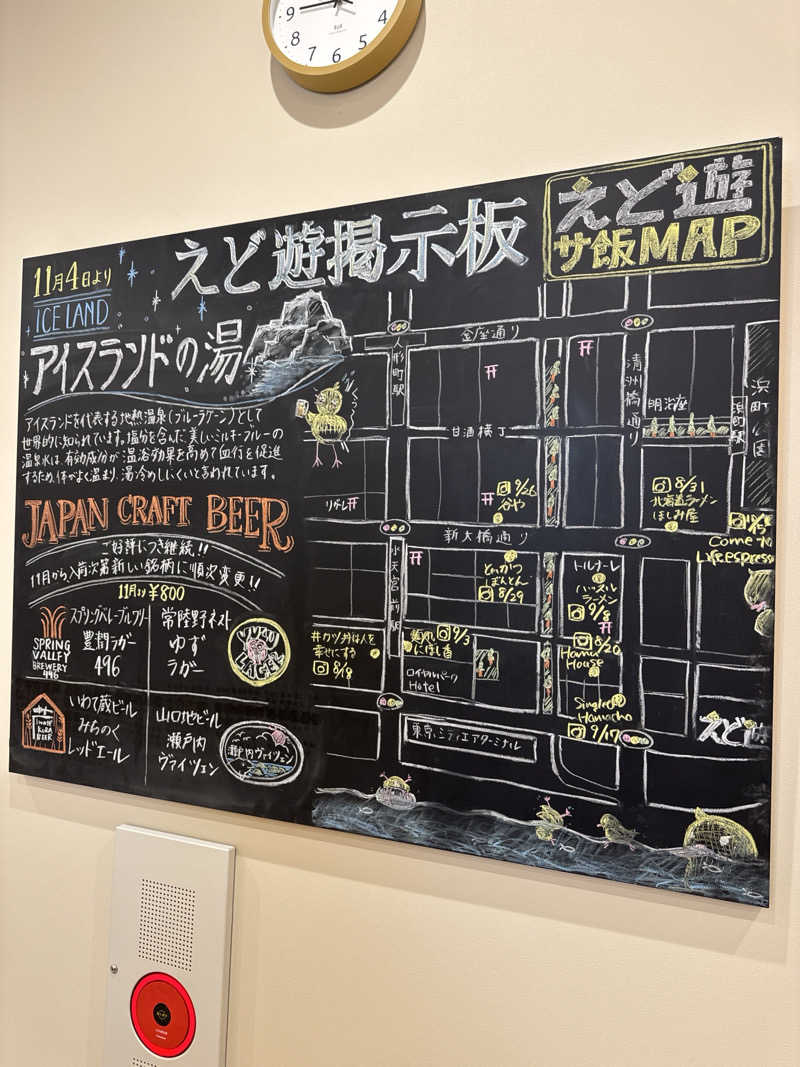 9
8
7
6
5
4
えど遊掲示板
えど遊
サ飯MAP
11月4日より
ICELAND
アイスランドの湯
アイスランドを代表する地熱温泉(ブルーラグーン)として
世界的に知られています。塩分を含んだ美しいミルキーブルーの
温泉水は、有効成分が温浴効果を高めて血行を促進
するため、体がよく温まり、湯冷めしにくいと言われています。
JAPAN CRAFT BEER
ご好評につき継続!!
11月から入荷次第新しい銘柄に順次変更!!
11月より ¥800
スプリングバレーブルワリー
豊潤ラガー
496
SPRING
VALLEY
BREWERY
496
常陸野ネスト
ゆず
ラガー
YUZU
LAGER
いわて蔵ビール
みちのく
レッドエール
IWATE
KURA
BEER
山口地ビール
瀬戸内
ヴァイツェン
瀬戸内ヴァイツェン
金座通り
人形町駅
清洲橋通り
明治座
浜町駅
浜町公園
甘酒横丁
9/26
谷や
8/31
北海道ラーメン
ほしみ屋
リガレ
新大橋通り
Come to
Lifeespresso
水天宮前駅
とんかつ
8/29
トルナーレ
ハッスル
ラーメン
9/8
#カツ丼は人を
幸せにする
8/8
9/3
にぼし香
8/20
Hama
House
ロイヤルパーク
Hotel
Single
Hamacho
9/17
えど遊
東京シティエアターミナル